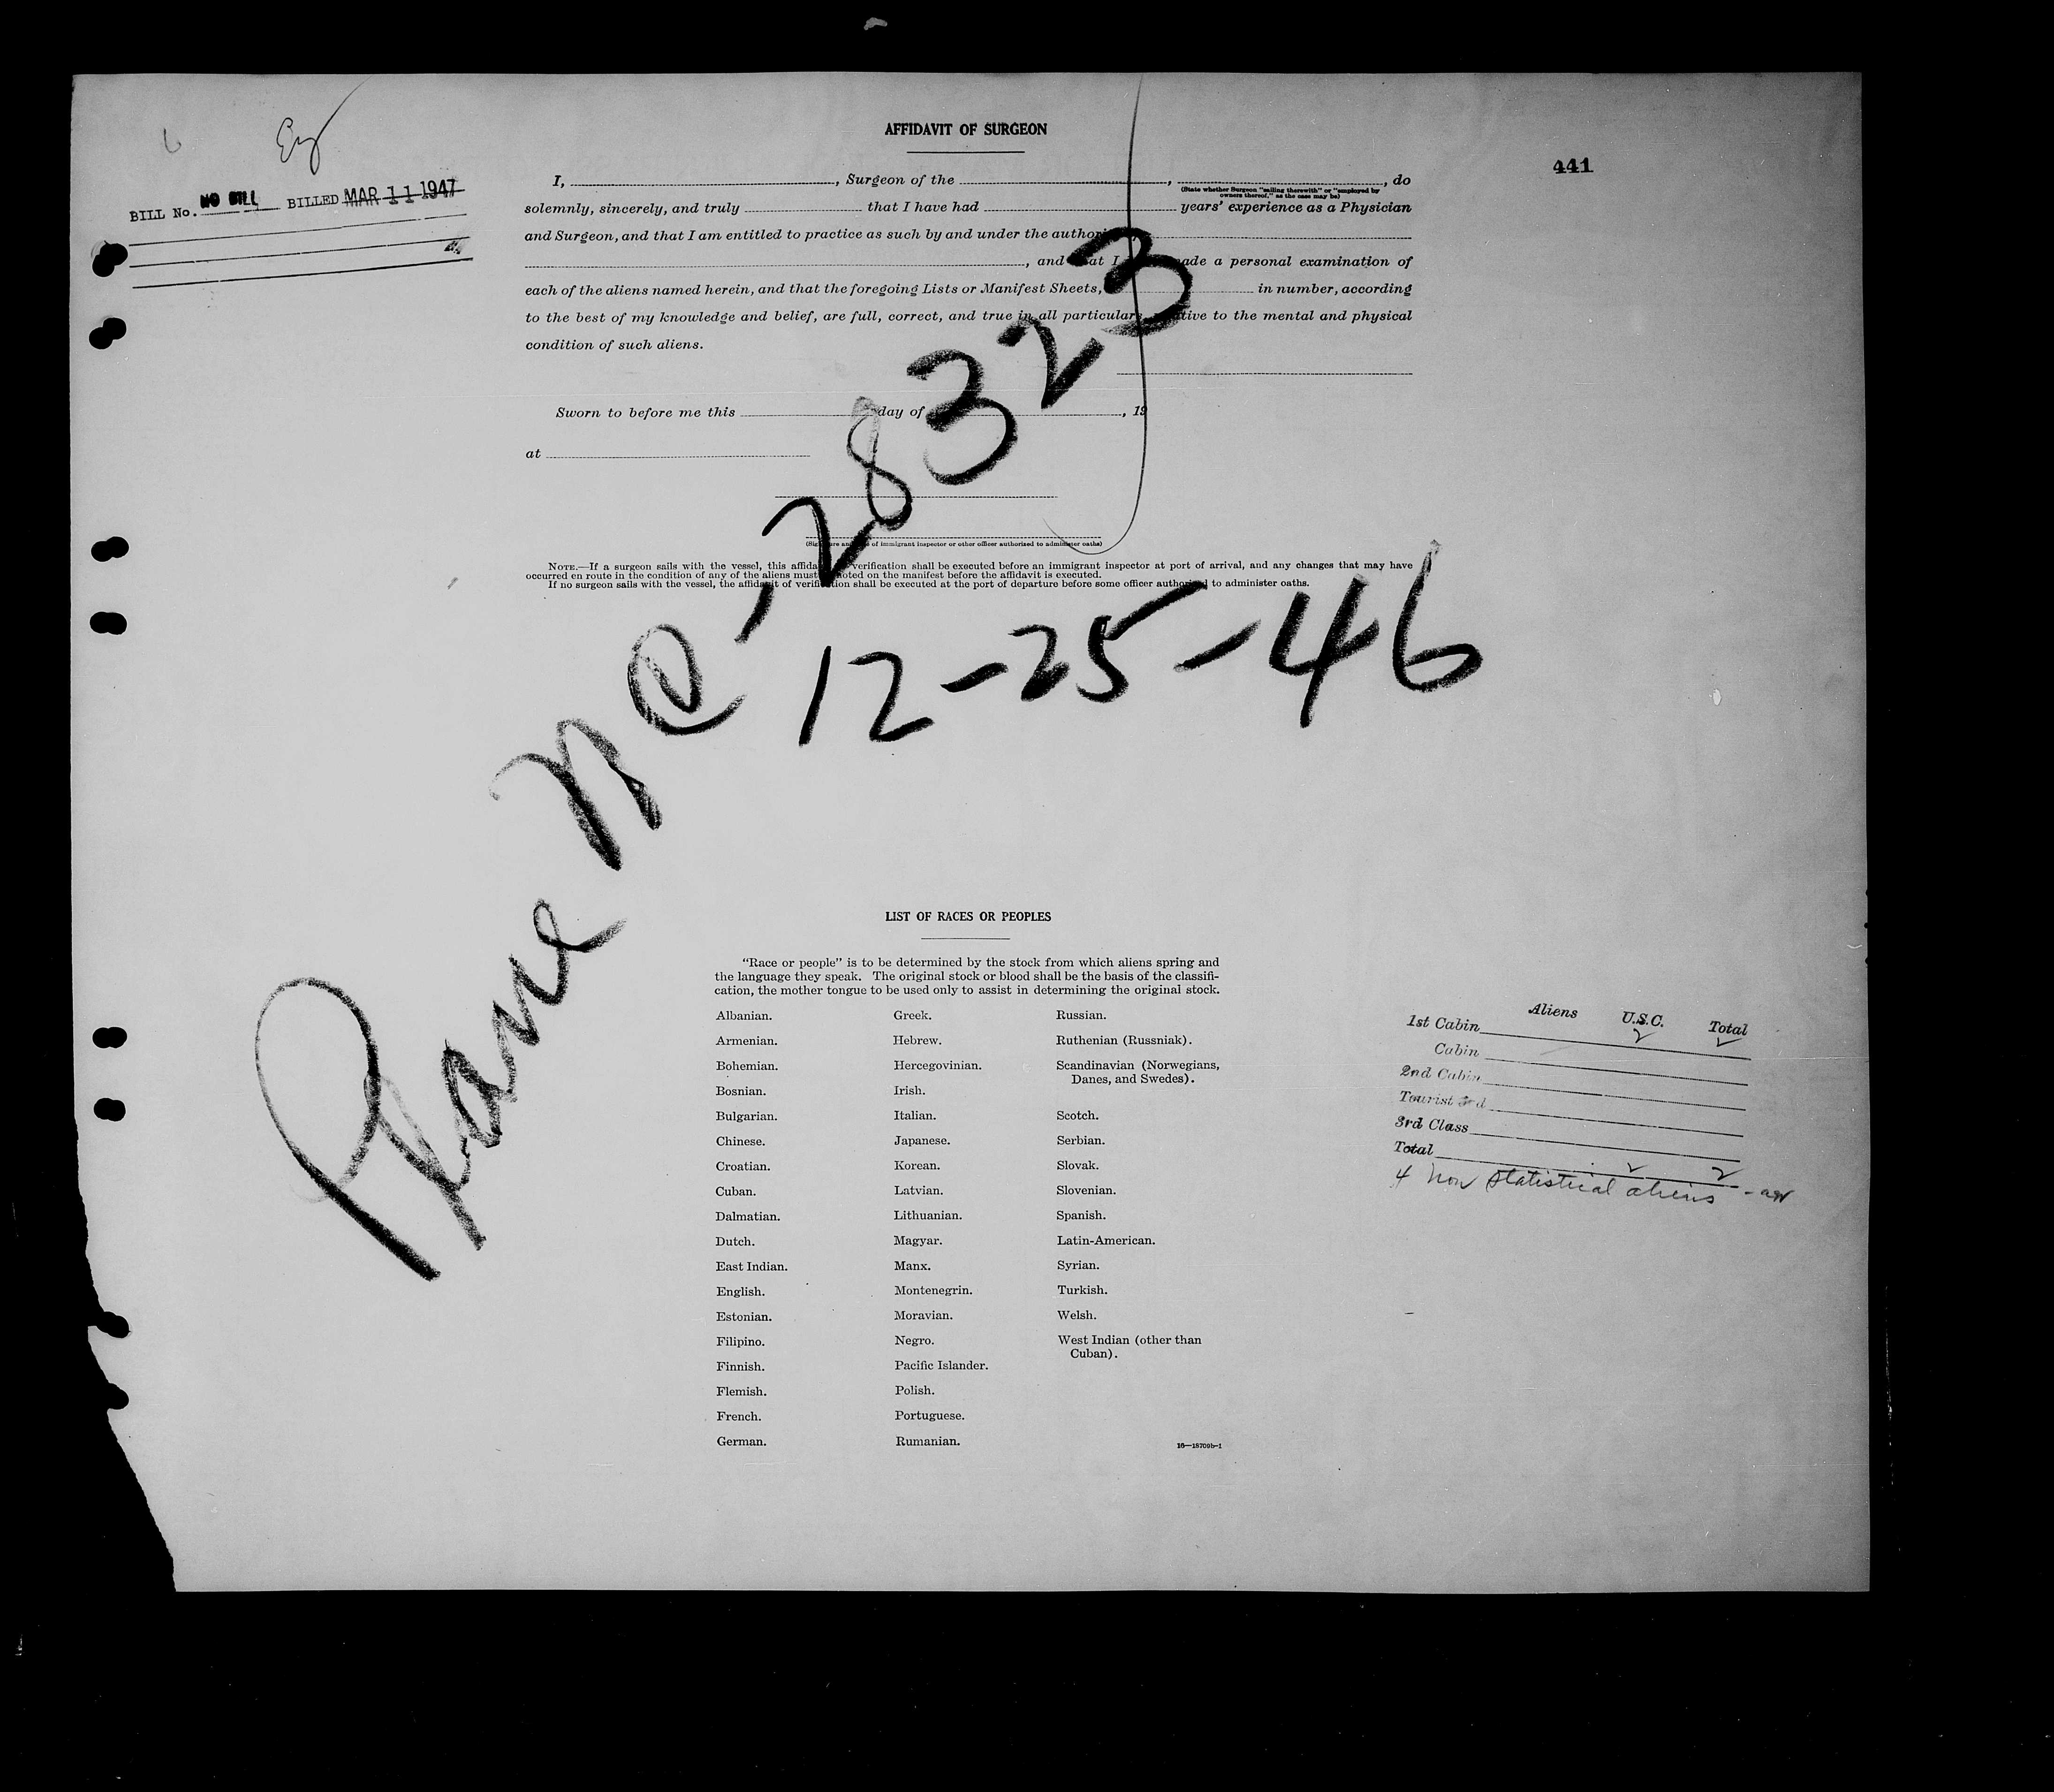 AFFIDAVIT OF SURGEON
441
BILL No. NO BILL BILLED MAR 11 1947
I, , Surgeon of the , , do
(State whether Surgeon "sailing therewith" or "employed by
owners thereof," as the case may be)
solemnly, sincerely, and truly that I have had years' experience as a Physician
and Surgeon, and that I am entitled to practice as such by and under the
, and I a personal examination of
each of the aliens named herein, and that the foregoing Lists or Manifest Sheets, in number, according
to the best of my knowledge and belief, are full, correct, and true in all particulars to the mental and physical
condition of such aliens.
Sworn to before me this day of , 19
at
of immigrant inspector or other officer authorized to administer oaths)
NOTE.—If a surgeon sails with the vessel, this verification shall be executed before an immigrant inspector at port of arrival, and any changes that may have
occurred en route in the condition of any of the aliens must noted on the manifest before the affidavit is executed.
If no surgeon sails with the vessel, the affidavit of verification shall be executed at the port of departure before some officer authorized to administer oaths.
Plane NC-28323
12-25-46
LIST OF RACES OR PEOPLES
"Race or people" is to be determined by the stock from which aliens spring and
the language they speak. The original stock or blood shall be the basis of the classifi-
cation, the mother tongue to be used only to assist in determining the original stock.
Albanian. Greek. Russian.
Armenian. Hebrew. Ruthenian (Russniak).
Bohemian. Hercegovinian. Scandinavian (Norwegians,
Danes, and Swedes).
Bosnian. Irish.
Bulgarian. Italian. Scotch.
Chinese. Japanese. Serbian.
Croatian. Korean. Slovak.
Cuban. Latvian. Slovenian.
Dalmatian. Lithuanian. Spanish.
Dutch. Magyar. Latin-American.
East Indian. Manx. Syrian.
English. Montenegrin. Turkish.
Estonian. Moravian. Welsh.
Filipino. Negro. West Indian (other than
Cuban).
Finnish. Pacific Islander.
Flemish. Polish.
French. Portuguese.
German. Rumanian.
16—18709b-1
Aliens U.S.C. Total
1st Cabin 2 2
Cabin
2nd Cabin
Tourist 3rd
3rd Class
Total 2 2
4 Non Statistical aliens